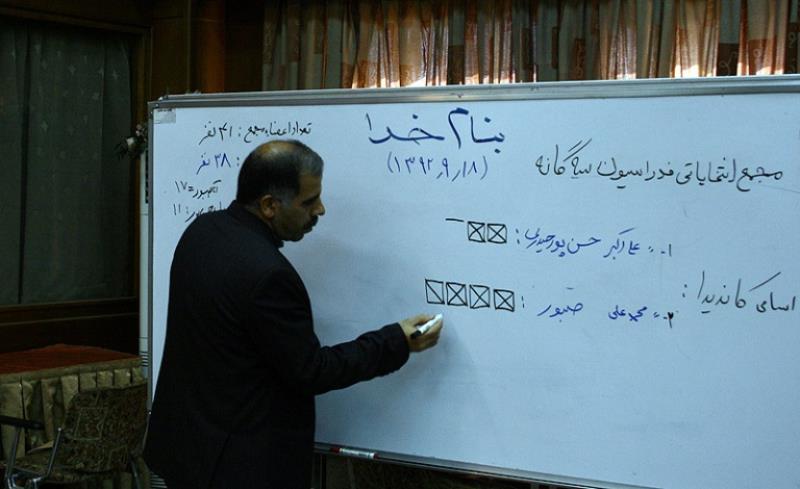 بنام خدا
(۱۳۹۲٫۹٫۱۸)
تعداد اعضاء مجمع : ۴۱ نفر
: ۳۸ نفر
۱۷
: ۱۱
مجمع انتخاباتی فدراسیون سه گانه
اسامی کاندیدا :
۱- علی اکبر حسن پور حیدری :
۲- محمد علی صبور :